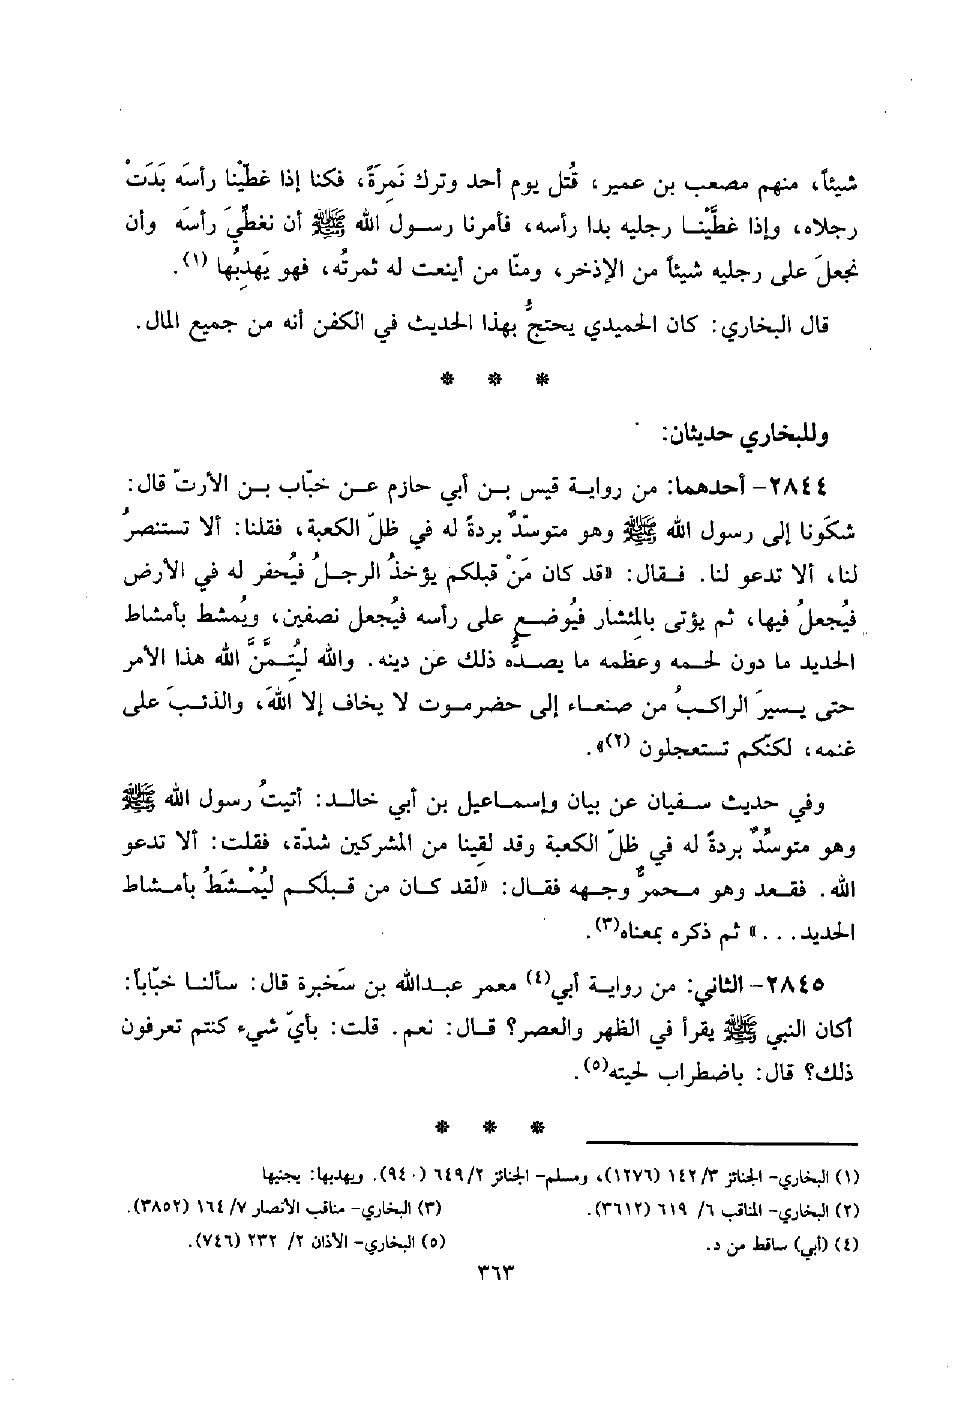 شيئاً، منهم مصعب بن عمير، قُتل يوم أحد وترك نَمِرَةً، فكنا إذا غطّيْنا رأسَه بَدَتْ
رجلاه، وإذا غطَّيْنا رجليه بدا رأسه، فأمرنا رسول الله ﷺ أن نغطيَ رأسَه وأن
نجعلَ على رجليه شيئاً من الإذخر، ومنّا من أينعت له ثمرتُه، فهو يَهدِبُها (١).
قال البخاري: كان الحميدي يحتجُّ بهذا الحديث في الكفن أنه من جميع المال.
* * *
وللبخاري حديثان:
٢٨٤٤- أحدهما: من رواية قيس بن أبي حازم عن خبّاب بن الأرتّ قال:
شكَونا إلى رسول الله ﷺ وهو متوسّدٌ بردةً له في ظلّ الكعبة، فقلنا: ألا تستنصرُ
لنا، ألا تدعو لنا. فقال: «قد كان مَنْ قبلكم يؤخذُ الرجلُ فيُحفر له في الأرض
فيُجعلُ فيها، ثم يؤتى بالمِنْشار فيُوضع على رأسه فيُجعل نصفين، ويُمشط بأمشاط
الحديد ما دون لحمه وعظمه ما يصدُّه ذلك عن دينه. والله ليُتمَّنَّ الله هذا الأمر
حتى يسيرَ الراكبُ من صنعاء إلى حضرموت لا يخاف إلا اللهَ، والذئبَ على
غنمه، لكنّكم تستعجلون (٢)».
وفي حديث سفيان عن بيان وإسماعيل بن أبي خالد: أتيتُ رسول الله ﷺ
وهو متوسِّدٌ بردةً له في ظلّ الكعبة وقد لقِينا من المشركين شدّة، فقلت: ألا تدعو
الله. فقعد وهو محمرٌّ وجهه فقال: «لقد كان من قبلَكم ليُمْشَطُ بأمشاط
الحديد...» ثم ذكره بمعناه(٣).
٢٨٤٥- الثاني: من رواية أبي(٤) معمر عبدالله بن سَخبرة قال: سألنا خبّاباً:
أكان النبي ﷺ يقرأ في الظهر والعصر؟ قال: نعم. قلت: بأيّ شيء كنتم تعرفون
ذلك؟ قال: باضطراب لحيته(٥).
* * *
(١) البخاري- الجنائز ٣/ ١٤٢ (١٢٧٦)، ومسلم- الجنائز ٢/ ٦٤٩ (٩٤٠). ويهدبها: يجنيها
(٢) البخاري- المناقب ٦/ ٦١٩ (٣٦١٢). (٣) البخاري- مناقب الأنصار ٧/ ١٦٤ (٣٨٥٢).
(٤) (أبي) ساقط من د. (٥) البخاري- الأذان ٢/ ٢٣٢ (٧٤٦).
٣٦٣